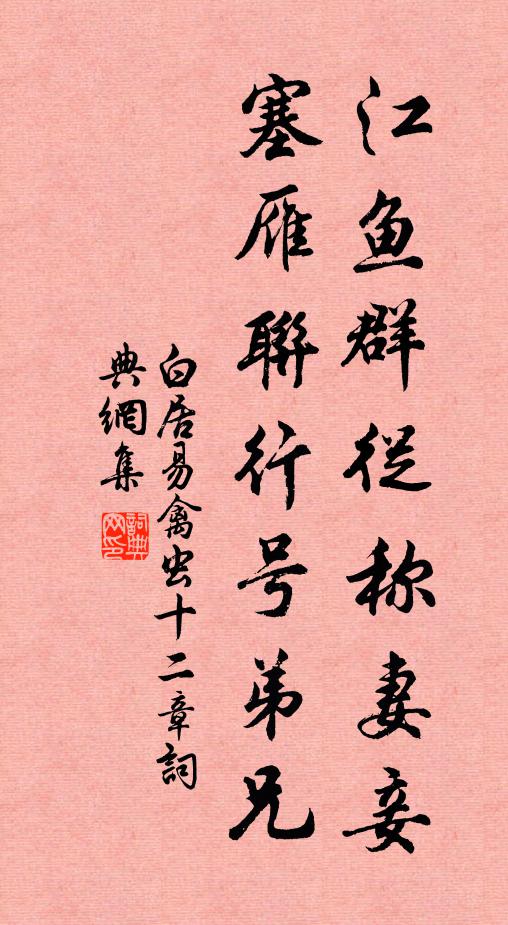 江鱼群從称妻妾
塞雁聯行号弟兄
白居易禽虫十二章詞
典網集
詞典网印